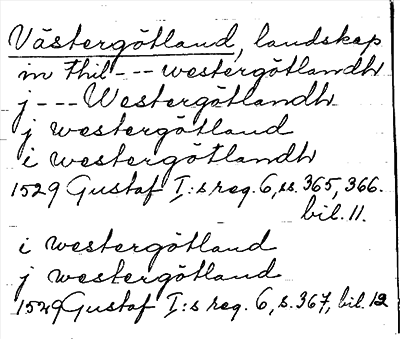 Västergötland, landskap
in thil --- westergötlandh
j --- Westergötlandh
j westergötland
i westergötlandh
1529 Gustaf I:s reg. 6, ss. 365, 366.
bil. 11.
i westergötland
j westergötland
1529 Gustaf I:s reg. 6, s. 367, bil. 12